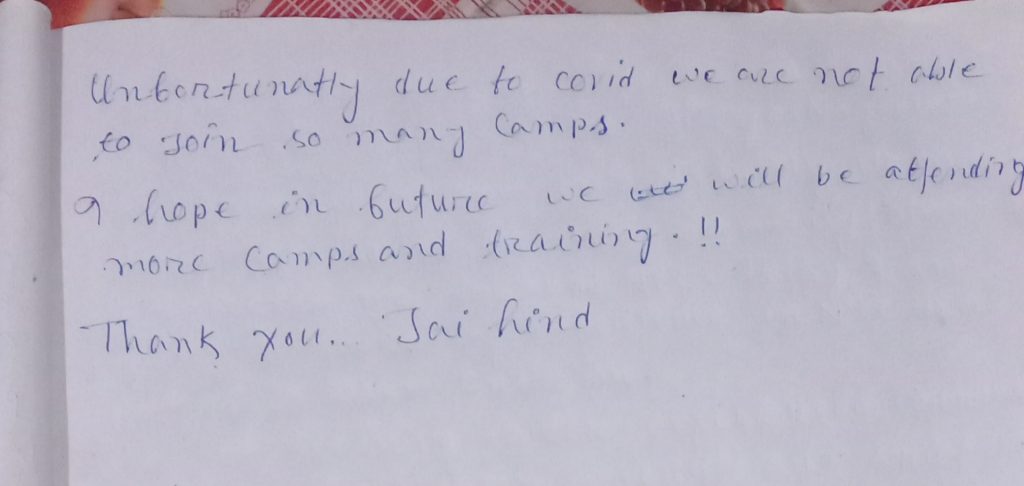 Unfortunatly due to covid we are not able
to join so many Camps.
I hope in future we will be attending
more Camps and training. !!
Thank you... Jai hind